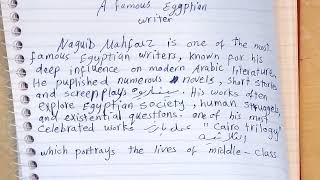 A famous Eggptian
writer
Naguib Mahfouz is one of the most
famous Egyptian writers, known for his
deep influence on modern Arabic literature.
He puplished numerous novels, short stories
and screenplays سيناريو. His works often
explore Egyptian society, human struggels
and existential questions. one of his most
celebrated works "Cairo trilogy"
which portrays the lives of middle-class